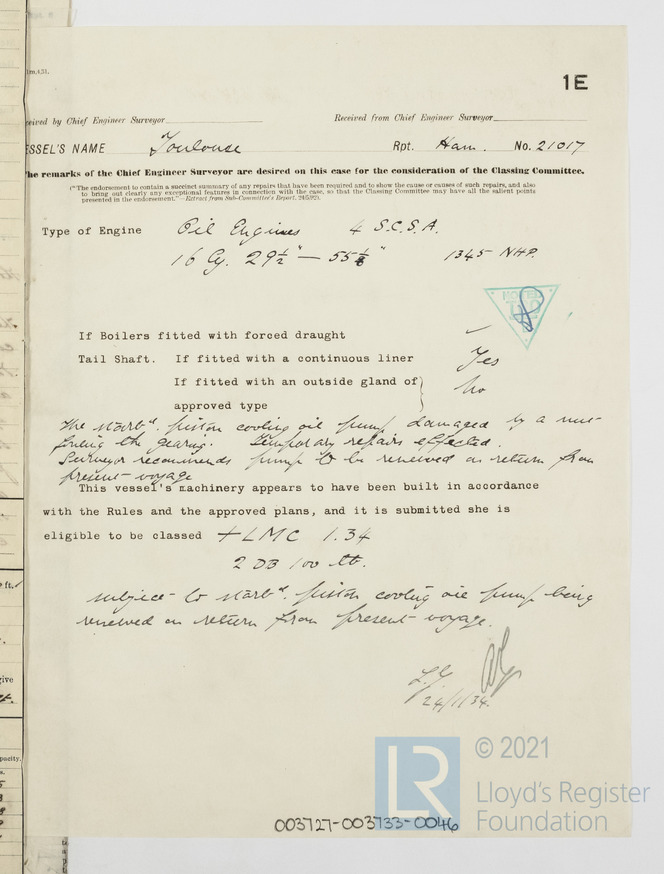 1m,4,31.
1E
ceived by Chief Engineer Surveyor
Received from Chief Engineer Surveyor
ESSEL'S NAME Toulouse Rpt. Ham. No. 21017
he remarks of the Chief Engineer Surveyor are desired on this case for the consideration of the Classing Committee.
("The endorsement to contain a succinct summary of any repairs that have been required and to show the cause or causes of such repairs, and also
to bring out clearly any exceptional features in connection with the case, so that the Classing Committee may have all the salient points
presented in the endorsement."—Extract from Sub-Committee's Report,
Type of Engine Oil Engines 4 S.C.S.A.
16 Cy. 29½" — 55⅛" 1345 NHP.
NOTED
If Boilers fitted with forced draught
Tail Shaft. If fitted with a continuous liner Yes
If fitted with an outside gland of No
approved type
The starbd. piston cooling oil pump damaged by a nut
fouling the gearing. Temporary repairs effected.
Surveyor recommends pump to be renewed on return from
present voyage
This vessel's machinery appears to have been built in accordance
with the Rules and the approved plans, and it is submitted she is
eligible to be classed +LMC 1.34
2 DB 100 lb.
subject to starbd. piston cooling oil pump being
renewed on return from present voyage.
24/1/34.
LR
© 2021
Lloyd's Register
Foundation
003727-003733-0046
ft.
give
pacity.